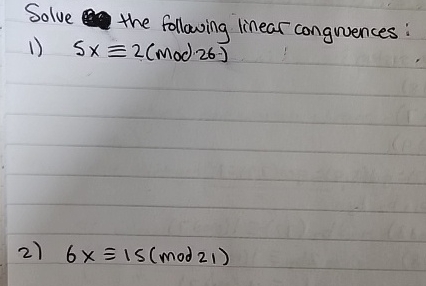 Solve the following linear congruences :
1) 5x ≡ 2(mod 26)
2) 6x ≡ 15(mod 21)